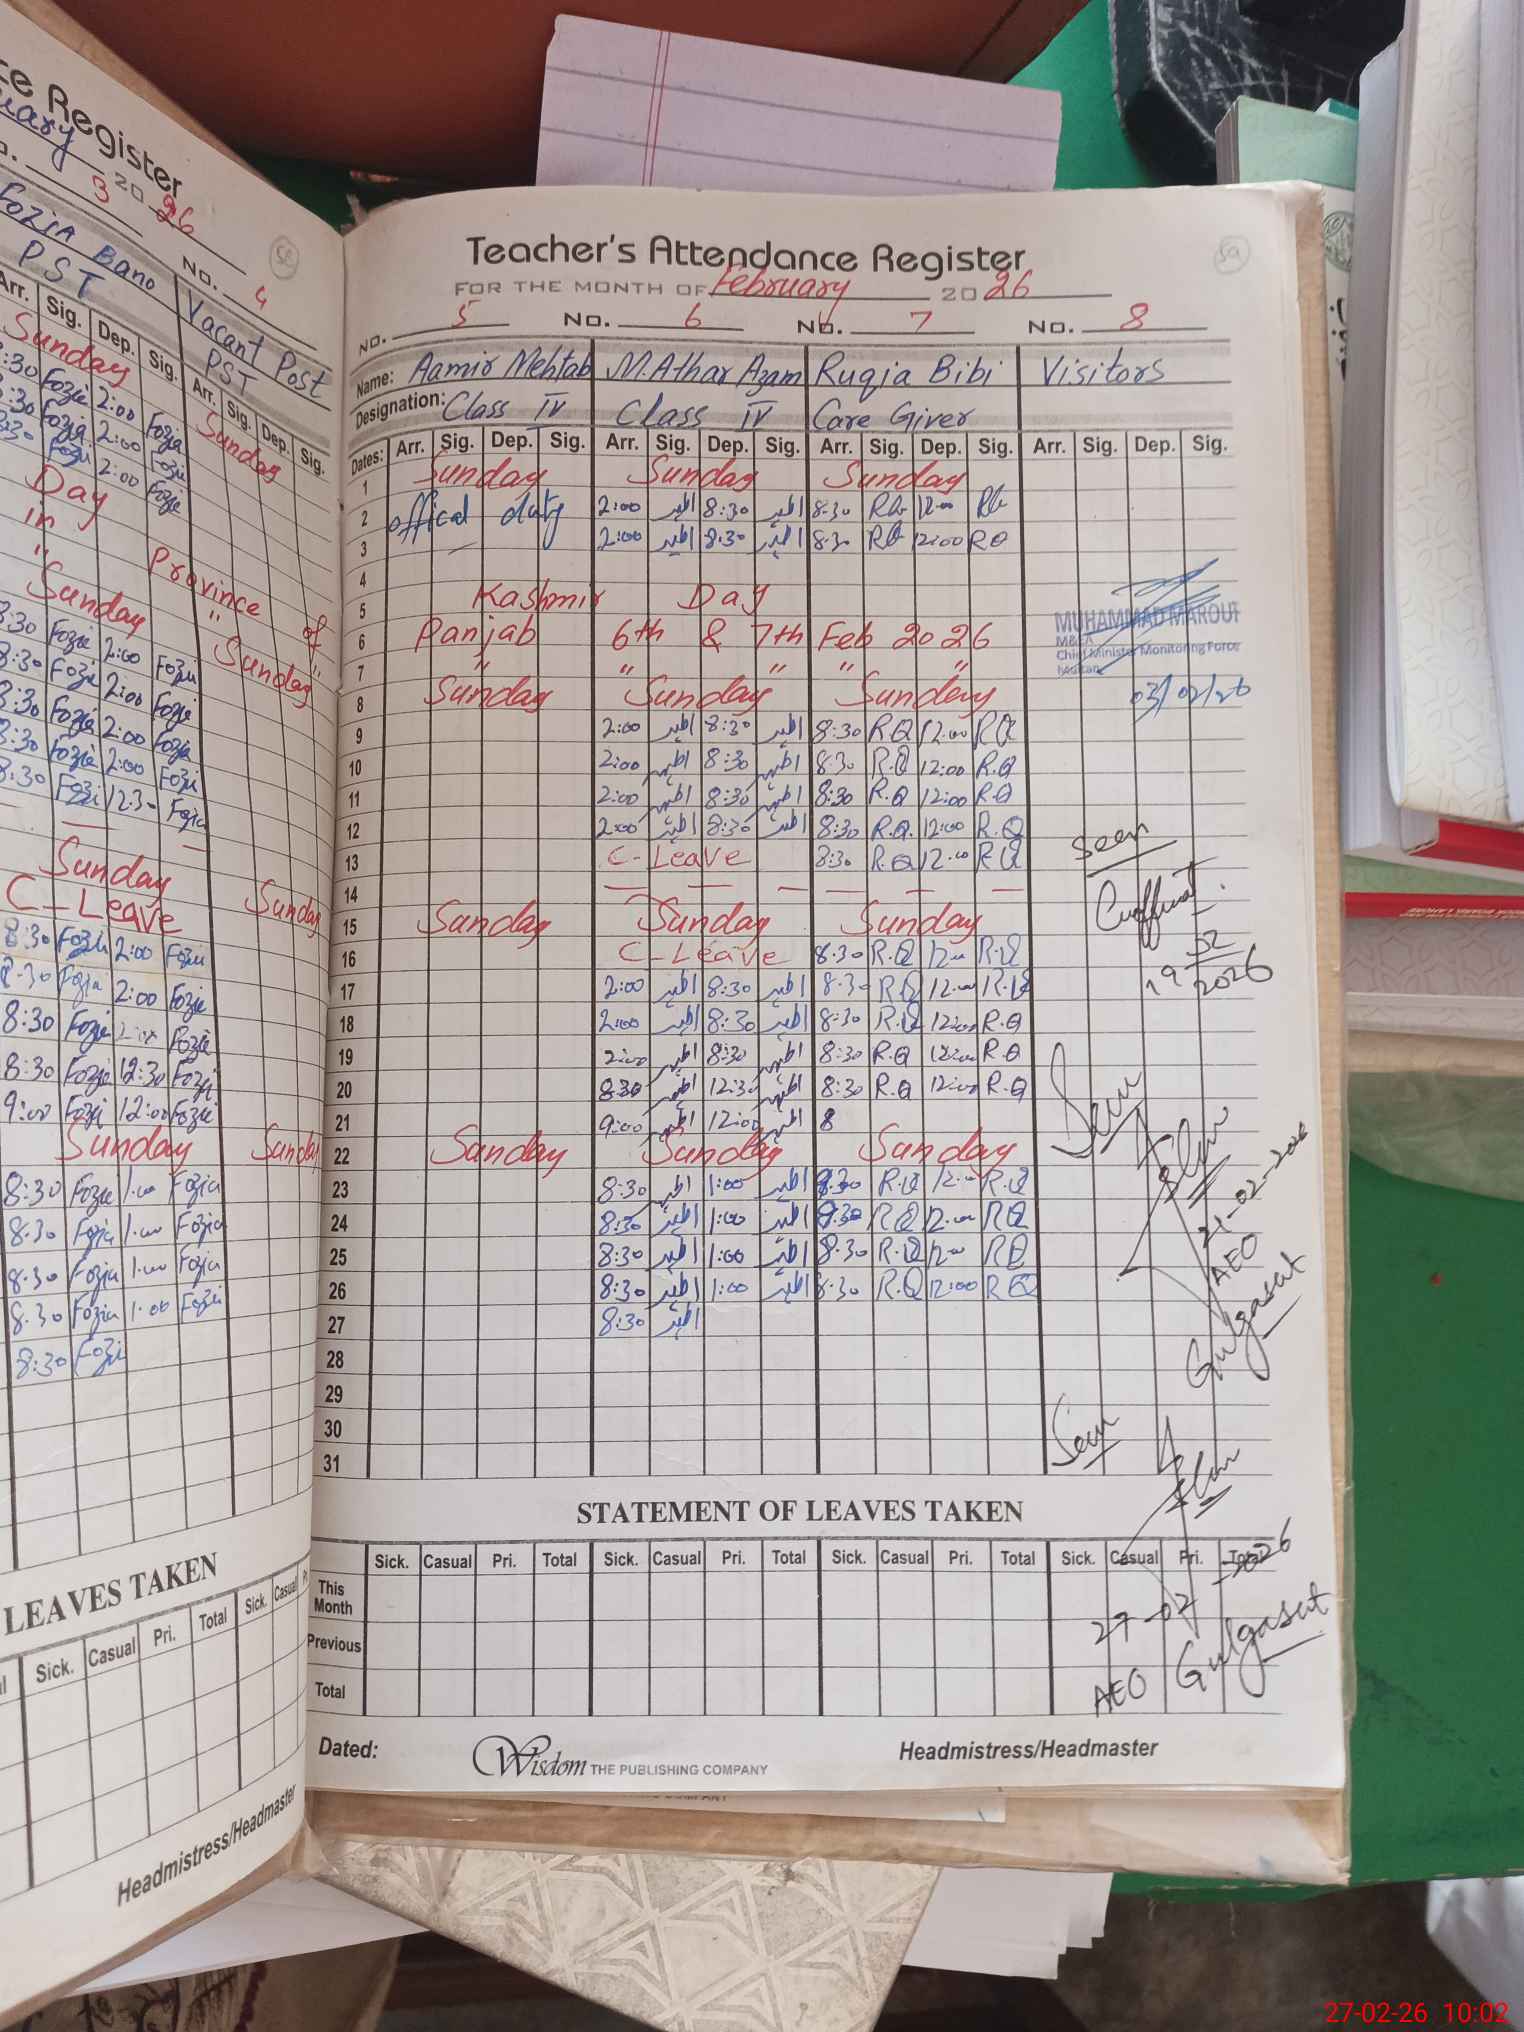 ce Register
uary 20 26
No. 3 No. 4
Fozia Bano Vacant Post
PST PST
Arr. Sig. Dep. Sig. Arr. Sig. Dep. Sig.
Sunday Sunday
8:30 Fozia 2:00 Fozia
8:30 Fozia 2:00 Fozia
8:30 Fozia 2:00 Fozia
Day
in Province of
" " "
Sunday Sunday
8:30 Fozia 2:00 Fozia
8:30 Fozia 2:00 Fozia
8:30 Fozia 2:00 Fozia
8:30 Fozia 2:00 Fozia
8:30 Fozia 12:30 Fozia
Sunday Sunday
C-Leave
8:30 Fozia 2:00 Fozia
8:30 Fozia 2:00 Fozia
8:30 Fozia 2:00 Fozia
8:30 Fozia 12:30 Fozia
9:00 Fozia 12:00 Fozia
Sunday Sunday
8:30 Fozia 1:00 Fozia
8:30 Fozia 1:00 Fozia
8:30 Fozia 1:00 Fozia
8:30 Fozia 1:00 Fozia
8:30 Fozia
LEAVES TAKEN
Sick. Casual Pri. Total Sick. Casual
Headmistress/Headmaster
Teacher's Attendance Register
FOR THE MONTH OF February 20 26
No. 5 No. 6 No. 7 No. 8
Name: Aamir Mehtab M.Athar Azam Ruqia Bibi Visitors
Designation: Class IV Class IV Care Giver
Dates: Arr. Sig. Dep. Sig. Arr. Sig. Dep. Sig. Arr. Sig. Dep. Sig. Arr. Sig. Dep. Sig.
1 Sunday Sunday Sunday
2 offical duty 2:00 اطہر 8:30 اطہر 8:30 RQ 12:00 RQ
3 2:00 اطہر 8:30 اطہر 8:30 RQ 12:00 RQ
4
5 Kashmir Day
6 Panjab 6th & 7th Feb 2026
7 " " " " "
8 Sunday Sunday Sunday
9 2:00 اطہر 8:30 اطہر 8:30 R.Q 12:00 RQ
10 2:00 اطہر 8:30 اطہر 8:30 R.Q 12:00 R.Q
11 2:00 اطہر 8:30 اطہر 8:30 R.Q 12:00 R.Q
12 2:00 اطہر 8:30 اطہر 8:30 R.Q. 12:00 R.Q
13 C-Leave 8:30 R.Q 12:00 RQ
14
15 Sunday Sunday Sunday
16 C-Leave 8:30 R.Q 12:00 R.Q
17 2:00 اطہر 8:30 اطہر 8:30 RQ 12:00 R.Q
18 2:00 اطہر 8:30 اطہر 8:30 R.Q 12:00 R.Q
19 2:00 اطہر 8:30 اطہر 8:30 R.Q 12:00 R.Q
20 8:30 اطہر 12:30 اطہر 8:30 R.Q 12:00 R.Q
21 9:00 اطہر 12:00 اطہر 8
22 Sunday Sunday Sunday
23 8:30 اطہر 1:00 اطہر 8:30 R.Q 12:00 R.Q
24 8:30 اطہر 1:00 اطہر 8:30 RQ 12:00 RQ
25 8:30 اطہر 1:00 اطہر 8:30 R.Q 12:00 RQ
26 8:30 اطہر 1:00 اطہر 8:30 R.Q 12:00 RQ
27 8:30 اطہر
28
29
30
31
MUHAMMAD MAROUF
M&EA
Chief Minister Monitoring Force
Multan
03/02/26
Seen
19 02 2026
Seen
21-02-2026
AEO
Gulgasat
Seen
27-02-2026
AEO Gulgasat
STATEMENT OF LEAVES TAKEN
Sick. Casual Pri. Total Sick. Casual Pri. Total Sick. Casual Pri. Total Sick. Casual Pri. Total
This Month
Previous
Total
Dated: Wisdom THE PUBLISHING COMPANY Headmistress/Headmaster
27-02-26 10:02